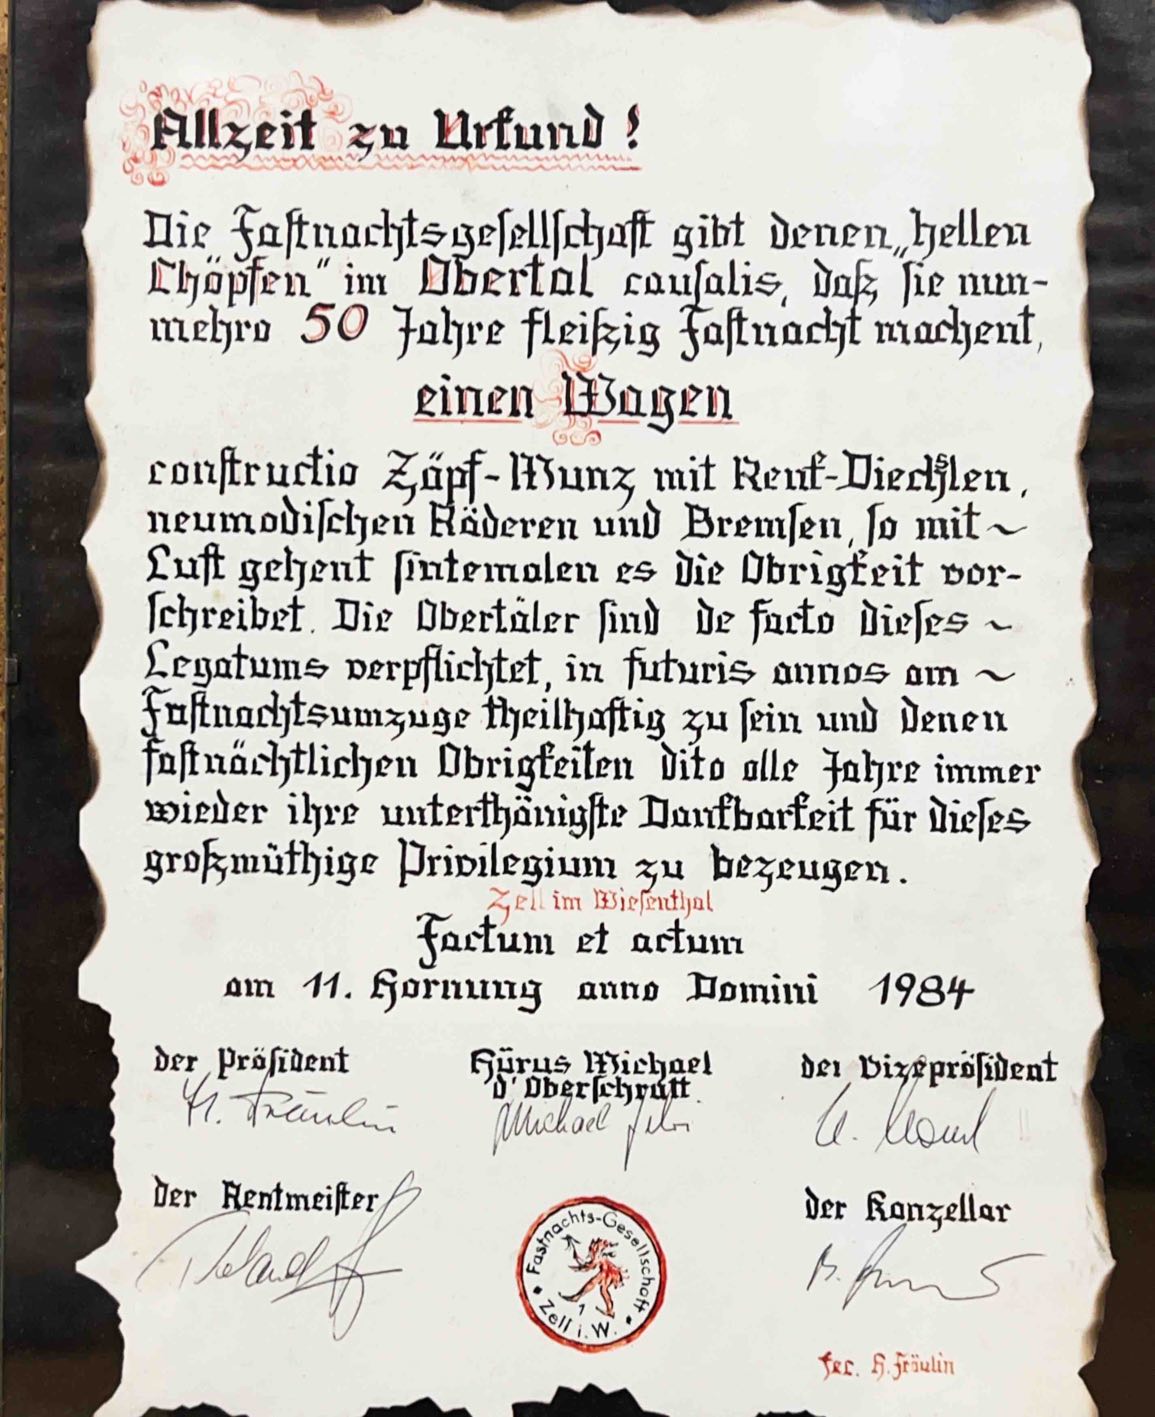 Allzeit zu Urkund!
Die Fastnachtsgesellschaft gibt denen „hellen
Chöpfen“ im Obertal causalis, daß sie nun-
mehro 50 Jahre fleißig Fastnacht machent,
einen Wagen
constructio Zäpf-Munz mit Renk-Diechslen,
neumodischen Räderen und Bremsen, so mit ~
Luft gehent sintemalen es die Obrigkeit vor-
schreibet. Die Obertäler sind de facto dieses ~
Legatums verpflichtet, in futuris annos am ~
Fastnachtsumzuge theilhaftig zu sein und denen
fastnächtlichen Obrigkeiten dito alle Jahre immer
wieder ihre unterthänigste Dankbarkeit für dieses
großmüthige Privilegium zu bezeugen.
Zell im Wiesenthal
Factum et actum
am 11. Hornung anno Domini 1984
der Präsident
Hürus Michael
d'Oberschratt.
der Vizepräsident
H. Fräulin
Michael
der Rentmeister
der Kanzellar
Fastnachts-Gesellschaft
Zell i. W.
fec. H. Fräulin